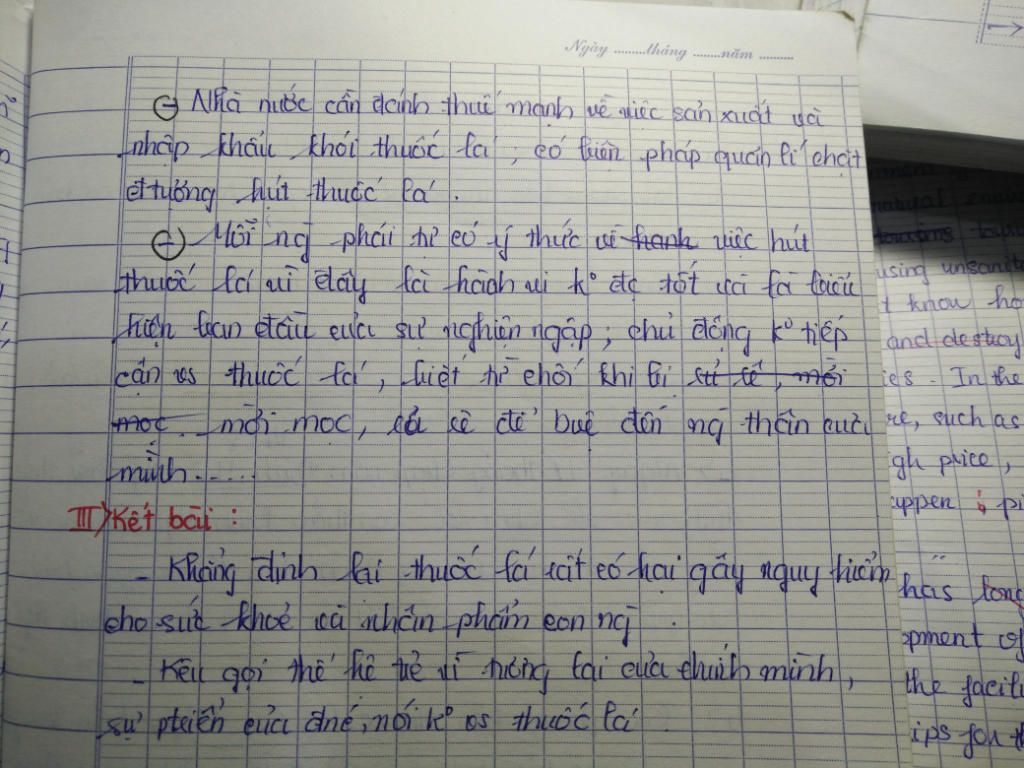 Ngày .........tháng .......năm .........
+ Nhà nước cần đánh thuế mạnh về việc sản xuất và
nhập khẩu khói thuốc lá ; có biện pháp quản lí chặt
đ tượng hút thuốc lá .
+ Mỗi ng phải tự có ý thức về hành việc hút
thuốc lá vì đây là hành vi k° đc tốt và là biểu
hiện ban đầu của sự nghiện ngập ; chủ động k° tiếp
cận vs thuốc lá , biết từ chối khi bị mời
mọc mời mọc, để đến ng thân của
mình......
III) Kết bài :
- Khẳng định lại thuốc lá rất có hại gây nguy hiểm
cho sức khoẻ và nhân phẩm con ng .
- Kêu gọi thế hệ trẻ vì tương lai của chính mình ,
sự ptriển của đnc , nói k° vs thuốc lá
natural
using
t know ho
and destroy
ies . In the
re, such as
igh price ,
appen
has long
opment of
the facili
ips for th